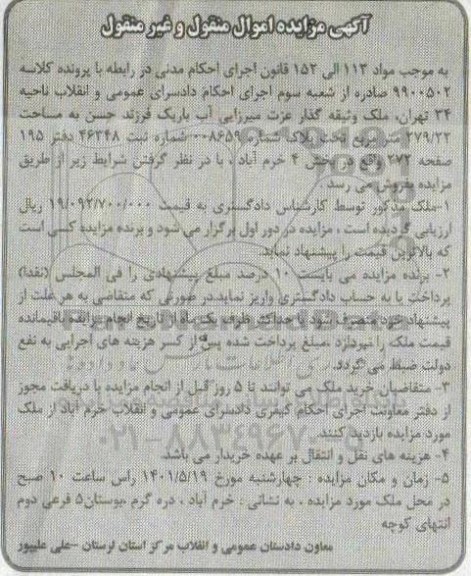 آگهی مزایده اموال منقول و غیر منقول
به موجب مواد ۱۱۳ الی ۱۵۲ قانون اجرای احکام مدنی در رابطه با پرونده کلاسه
۹۹۰۰۵۰۲ صادره از شعبه سوم اجرای احکام دادسرای عمومی و انقلاب ناحیه
۳۴ تهران، ملک وثیقه گذار عزت میرزایی آب باریک فرزند حسن به مساحت
۲۷۹/۲۲ متر مربع تحت پلاک شماره ۰۰۸۶۵۹ شماره ثبت ۴۶۳۴۸ دفتر ۱۹۵
صفحه ۲۷۲ واقع در بخش ۴ خرم آباد ، با در نظر گرفتن شرایط زیر از طریق
مزایده بفروش می رسد .
۱-ملک مذکور توسط کارشناس دادگستری به قیمت ۱۹/۰۹۲/۷۰۰/۰۰۰ ریال
ارزیابی گردیده است ، مزایده در دور اول برگزار می شود و برنده مزایده کسی است
که بالاترین قیمت را پیشنهاد نماید.
۲- برنده مزایده می بایست ۱۰ درصد مبلغ پیشنهادی را فی المجلس (نقدا)
پرداخت یا به حساب دادگستری واریز نماید.در صورتی که متقاضی به هر علت از
پیشنهاد خود منصرف شود یا حداکثر ظرف یک ماه از تاریخ انجام مزایده باقیمانده
قیمت ملک را نپردازد ،مبلغ پرداخت شده پس از کسر هزینه های اجرایی به نفع
دولت ضبط می گردد.
۳- متقاضیان خرید ملک می توانند تا ۵ روز قبل از انجام مزایده با دریافت مجوز
از دفتر معاونت اجرای احکام کیفری دادسرای عمومی و انقلاب خرم آباد از ملک
مورد مزایده بازدید کنند.
۴- هزینه های نقل و انتقال بر عهده خریدار می باشد.
۵- زمان و مکان مزایده : چهارشنبه مورخ ۱۴۰۱/۵/۱۹ راس ساعت ۱۰ صبح
در محل ملک مورد مزایده ، به نشانی : خرم آباد ، دره گرم ،بوستان۵ فرعی دوم
انتهای کوچه
معاون دادستان عمومی و انقلاب مرکز استان لرستان -علی علیپور
۰۲۱-۸۸۳۴۹۶۷۰